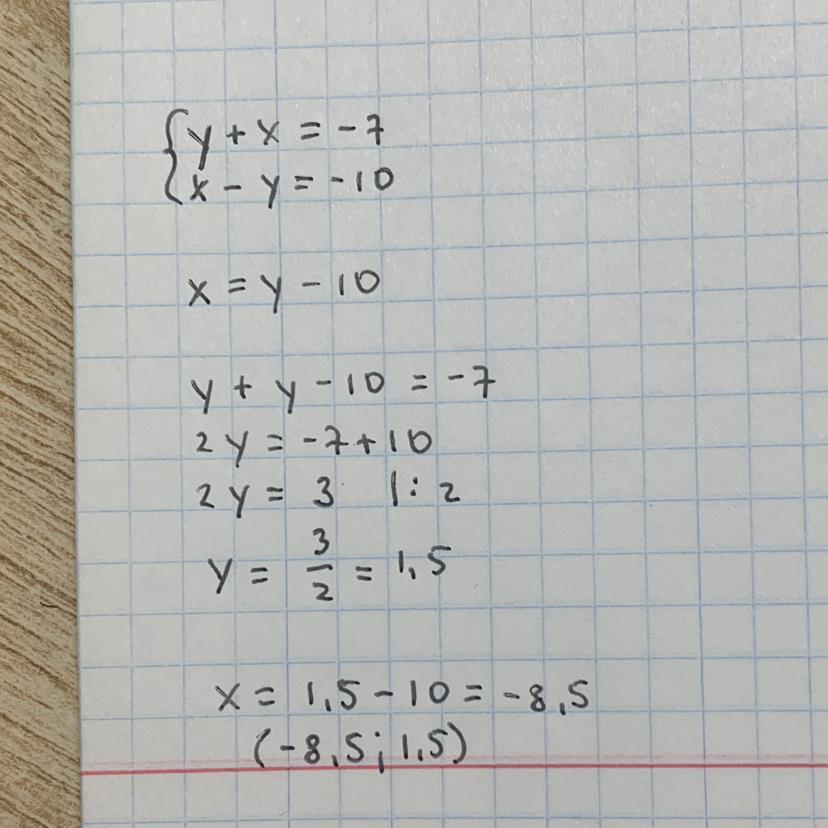 {y + x = -7
x - y = -10
x = y - 10
y + y - 10 = -7
2y = -7 + 10
2y = 3 |: 2
y = 3/2 = 1,5
x = 1,5 - 10 = -8,5
(-8,5; 1,5)